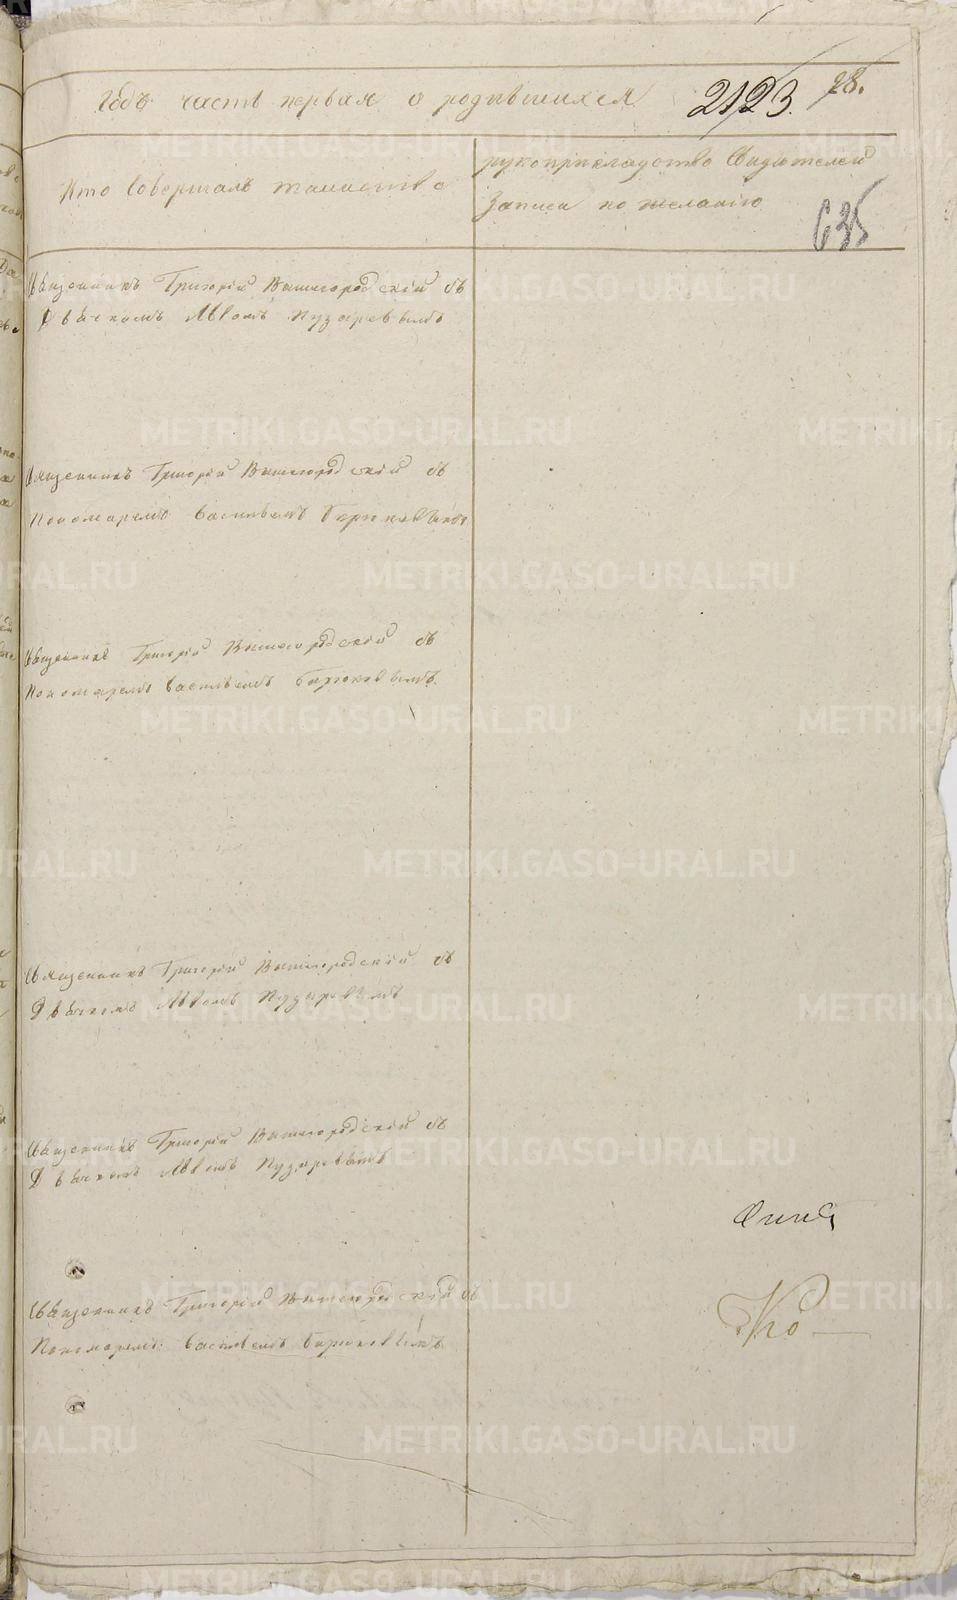 годъ часть первая о родившихся 2123. 28.
Кто совершалъ таинство
рукоприкладство свидетелей
записи по желанію
635
Священникъ Григорій Вышегородскій съ
Дьячкомъ Львомъ Пузыревымъ
Священникъ Григорій Вышегородскій съ
Пономаремъ Васильемъ Бирюковымъ
Священникъ Григорій Вышегородскій съ
Пономаремъ Васильемъ Бирюковымъ.
Священникъ Григорій Вышегородскій съ
Дьячкомъ Львомъ Пузыревымъ
Священникъ Григорій Вышегородскій съ
Дьячкомъ Львомъ Пузыревымъ
Священникъ Григорій Вышегородскій съ
Пономаремъ Васильемъ Бирюковымъ
METRIKI.GASO-URAL.RU